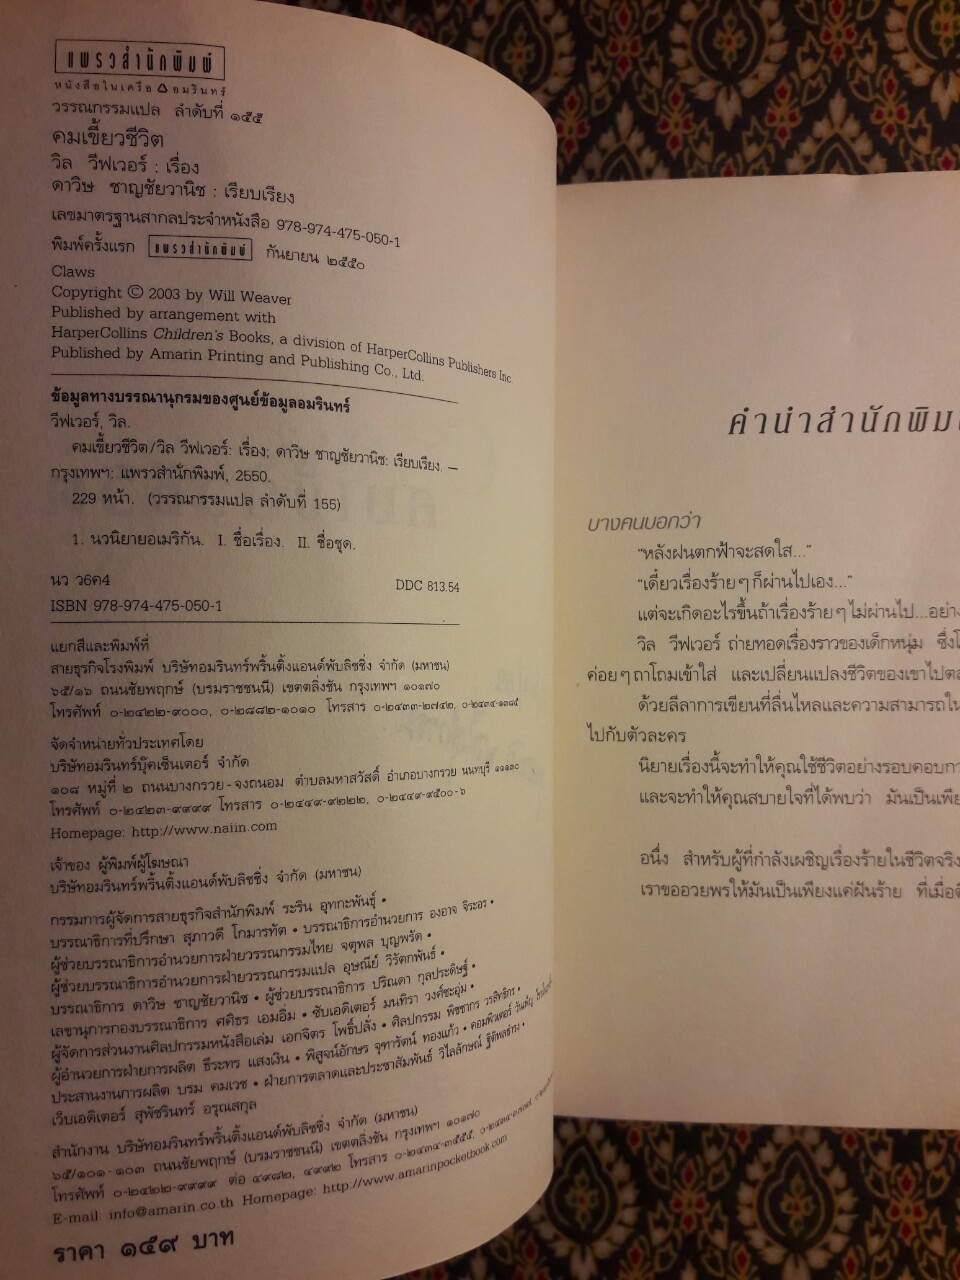 แพรวสำนักพิมพ์
หนังสือในเครือ อมรินทร์
วรรณกรรมแปล ลำดับที่ ๑๕๕
คมเขี้ยวชีวิต
วิล วีฟเวอร์ : เรื่อง
ดาวิษ ชาญชัยวานิช : เรียบเรียง
เลขมาตรฐานสากลประจำหนังสือ 978-974-475-050-1
พิมพ์ครั้งแรก แพรวสำนักพิมพ์ กันยายน ๒๕๕๐
Claws
Copyright © 2003 by Will Weaver
Published by arrangement with
HarperCollins Children's Books, a division of HarperCollins Publishers Inc.
Published by Amarin Printing and Publishing Co., Ltd.
ข้อมูลทางบรรณานุกรมของศูนย์ข้อมูลอมรินทร์
วีฟเวอร์, วิล.
คมเขี้ยวชีวิต/วิล วีฟเวอร์: เรื่อง; ดาวิษ ชาญชัยวานิช: เรียบเรียง. —
กรุงเทพฯ: แพรวสำนักพิมพ์, 2550.
229 หน้า. (วรรณกรรมแปล ลำดับที่ 155)
1. นวนิยายอเมริกัน. I. ชื่อเรื่อง. II. ชื่อชุด.
นว ว6ค4 DDC 813.54
ISBN 978-974-475-050-1
แยกสีและพิมพ์ที่
สายธุรกิจโรงพิมพ์ บริษัทอมรินทร์พริ้นติ้งแอนด์พับลิชชิ่ง จำกัด (มหาชน)
๖๕/๑๖ ถนนชัยพฤกษ์ (บรมราชชนนี) เขตตลิ่งชัน กรุงเทพฯ ๑๐๑๗๐
โทรศัพท์ ๐-๒๔๒๒-๙๐๐๐, ๐-๒๘๘๒-๑๐๑๐ โทรสาร ๐-๒๔๓๓-๒๗๔๒, ๐-๒๔๓๔-๑๓๘๕
จัดจำหน่ายทั่วประเทศโดย
บริษัทอมรินทร์บุ๊คเซ็นเตอร์ จำกัด
๑๐๘ หมู่ที่ ๒ ถนนบางกรวย-จงถนอม ตำบลมหาสวัสดิ์ อำเภอบางกรวย นนทบุรี ๑๑๑๓๐
โทรศัพท์ ๐-๒๔๒๓-๙๙๙๙ โทรสาร ๐-๒๔๔๙-๙๒๒๒, ๐-๒๔๔๙-๙๕๐๐-๖
Homepage: http://www.naiin.com
เจ้าของ ผู้พิมพ์ผู้โฆษณา
บริษัทอมรินทร์พริ้นติ้งแอนด์พับลิชชิ่ง จำกัด (มหาชน)
กรรมการผู้จัดการสายธุรกิจสำนักพิมพ์ ระริน อุทกะพันธุ์ •
บรรณาธิการที่ปรึกษา สุภาวดี โกมารทัต • บรรณาธิการอำนวยการ องอาจ จิระอร •
ผู้ช่วยบรรณาธิการอำนวยการฝ่ายวรรณกรรมไทย จตุพล บุญพรัด •
ผู้ช่วยบรรณาธิการอำนวยการฝ่ายวรรณกรรมแปล อุษณีย์ วิรัตกพันธ์ •
บรรณาธิการ ดาวิษ ชาญชัยวานิช • ผู้ช่วยบรรณาธิการ ปริณดา กุลประดิษฐ์ •
เลขานุการกองบรรณาธิการ ศศิธร เอมอิ่ม • ซับเอดิเตอร์ มนทิรา วงศ์ชะอุ่ม •
ผู้จัดการส่วนงานศิลปกรรมหนังสือเล่ม เอกจิตร โพธิ์ปลั่ง • ศิลปกรรม พิชชากร วรสิทธิกร •
ผู้อำนวยการฝ่ายการผลิต ธีระทร แสงเงิน • พิสูจน์อักษร จุฑารัตน์ ทองแก้ว • คอมพิวเตอร์ วันเพ็ญ
ประสานงานการผลิต บรม คมเวช • ฝ่ายการตลาดและประชาสัมพันธ์ วิไลลักษณ์
เว็บเอดิเตอร์ สุพัชรินทร์ อรุณสกุล
สำนักงาน บริษัทอมรินทร์พริ้นติ้งแอนด์พับลิชชิ่ง จำกัด (มหาชน)
๖๕/๑๐๑-๑๐๓ ถนนชัยพฤกษ์ (บรมราชชนนี) เขตตลิ่งชัน กรุงเทพฯ ๑๐๑๗๐
โทรศัพท์ ๐-๒๔๒๒-๙๙๙๙ ต่อ ๔๙๘๒, ๔๙๙๒ โทรสาร ๐-๒๔๓๔-๓๕๕๕,
E-mail: info@amarin.co.th Homepage: http://www.amarinpocketbook.com
ราคา ๑๕๙ บาท
คำนำสำนักพิม
บางคนบอกว่า
"หลังฝนตกฟ้าจะสดใส..."
"เดี๋ยวเรื่องร้ายๆ ก็ผ่านไปเอง..."
แต่จะเกิดอะไรขึ้นถ้าเรื่องร้ายๆ ไม่ผ่านไป...อย่าง
วิล วีฟเวอร์ ถ่ายทอดเรื่องราวของเด็กหนุ่ม ซึ่ง
ค่อยๆ ถาโถมเข้าใส่ และเปลี่ยนแปลงชีวิตของเขาไป
ด้วยลีลาการเขียนที่ลื่นไหลและความสามารถใน
ไปกับตัวละคร
นิยายเรื่องนี้จะทำให้คุณใช้ชีวิตอย่างรอบคอบ
และจะทำให้คุณสบายใจที่ได้พบว่า มันเป็นเพีย
อนึ่ง สำหรับผู้ที่กำลังเผชิญเรื่องร้ายในชีวิตจริง
เราขออวยพรให้มันเป็นเพียงแค่ฝันร้าย ที่เมื่อ